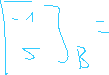 [-1
5]_B =